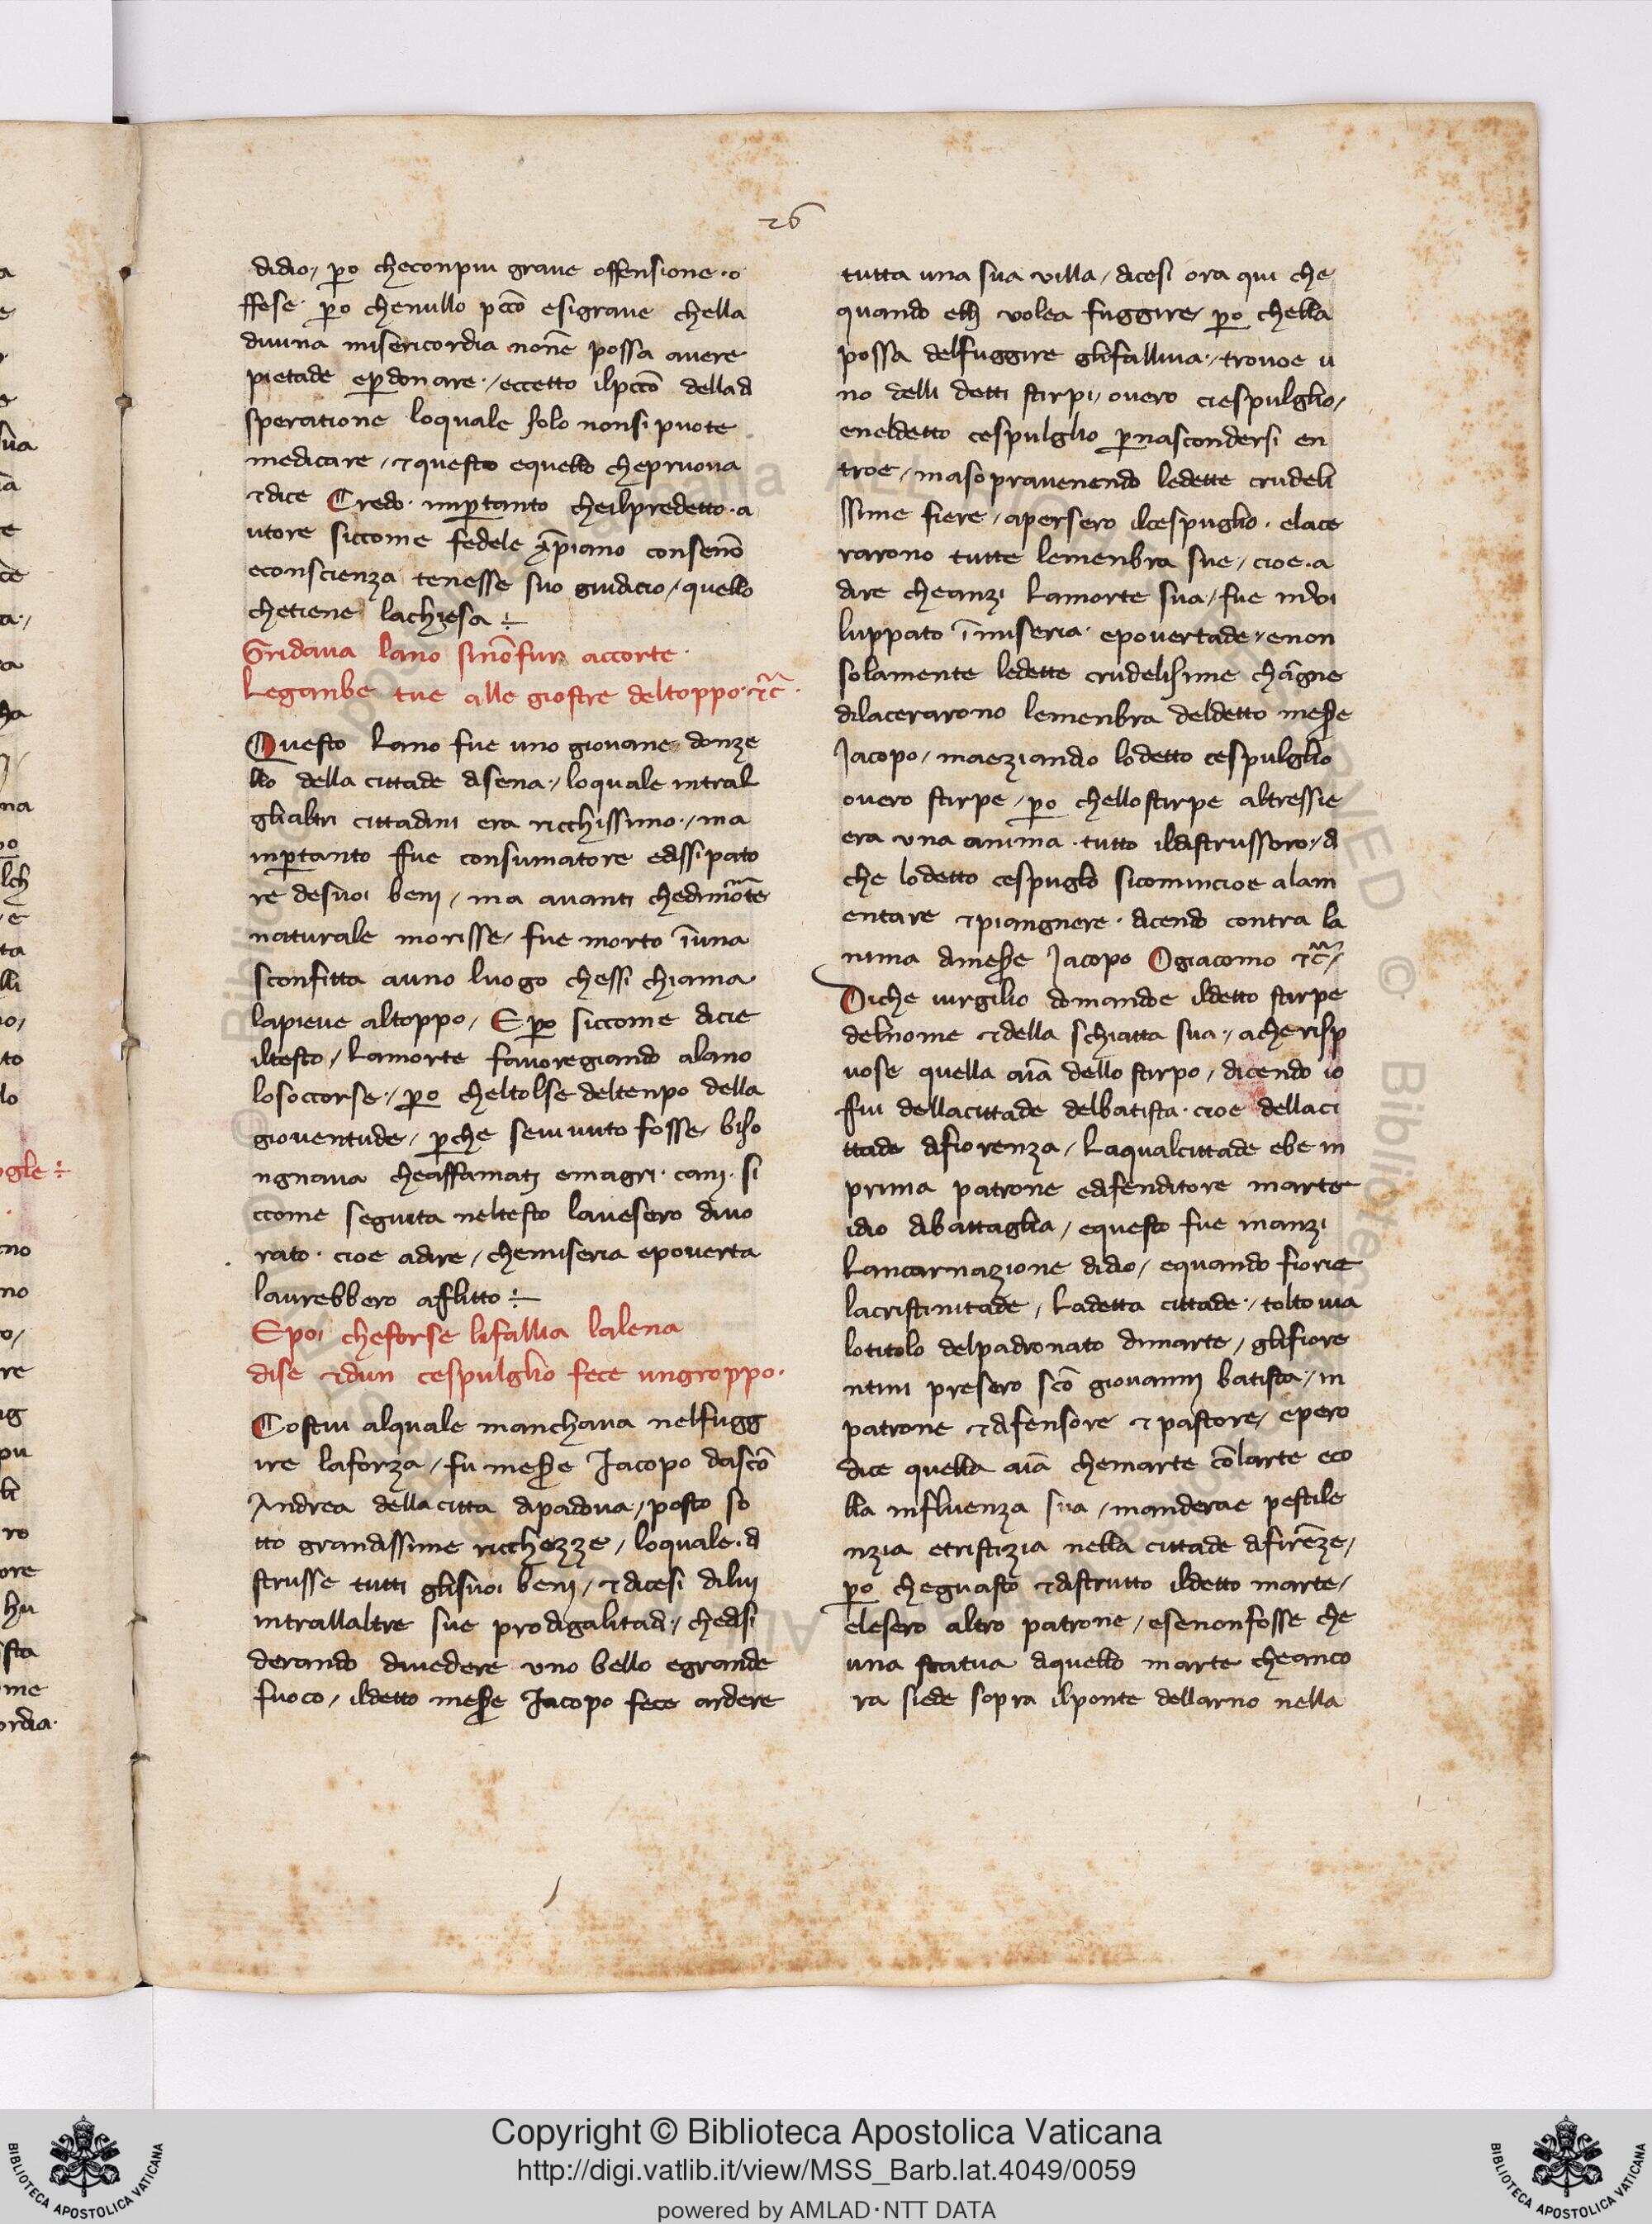 26
didio, p̱o checonpiu graue offensione·o
ffese· p̱o chenullo pc̄co̅ esigraue chella
diuina misericordia none̅ possa auere
pietade ep̱donare·, eccetto ilpc̄co̅ dellad
speratione loquale solo nonsi puote
medicare, ⁊questo equello chepruoua
⁊dice Credo· inp̱tanto cheilpredetto·a
utore siccome fedele xp̅iano conseno̅
econscienza tenesse suo giudicio, quello
chetiene lachiesa ÷
Gridaua lano sino̅ furo accorte·
Leganbe tue alle giostre deltoppo·⁊c̃·
Questo Lano fue uno giouane donze
llo della cittade disena·, loquale intral
glialtri cittadini era ricchissimo·, ma
inp̱tanto ffue consumatore edissipato
re desuoi benj, ma auanti chedimo̅te
naturale morisse, fue morto i̅una
sconfitta auno luogo chessi chiama
lapieue altoppo, Ep̱o siccome dicie
iltesto, Lamorte fauoregiando alano
losoccorse·, p̱o cheltolse deltenpo della
giouentude, p̱che seuiuuto fosse, biso
ngnaua cheaffamatj emagri· canj· si
ccome seguita neltesto lauesero diuo
rato· cioe adire, chemiseria epouerta
laurebbero afflitto ÷
Epoi cheforse lifallia lalena
dise ⁊dun cespulglio fece ungroppo·
Costui alquale manchaua nelfugg
ire laforza, fu mess̱e Jacopo dasc̄o̅
Andrea della citta dipadoua·, posto so
tto grandissime ricchezze, loquale·di
strusse tutti glisuoi benj, ⁊dicesi dilui
intrallaltre sue prodigalitadi·, chedisi
derando diuedere uno bello egrande
fuoco, ildetto mess̱e Jacopo fece ardere
tutta una sua uilla, dicesi ora qui che
quando ellj uolea fuggire, p̱o chella
possa delfuggire glifalliua·, trouoe u
no delli detti stirpi, ouero ciespulglio,
eneldetto cespulglio p̱nascondersi en
troe, masoprauenendo ledette crudeli
ssime fiere, apersero ilcespuglio· elace
rarono tutte lemenbra sue, cioe·a
dire cheanzi Lamorte sua, fue inui
luppato i̅ miseria· epouertade, enon
solamente ledette crudelissime cha̅gnie
dilacerarono lemenbra deldetto mess̱e
Jacopo, maeziandio lodetto cespulglio
ouero stirpe, p̱o chellostirpe altressie
era una anima·tutto ildistrussero·, di
che lodetto cespuglio sicomincioe alam
entare ⁊piangnere· dicendo contra la
nima dimess̱e Jacopo Ogiacomo ⁊c̃,
Diche uirgilio domandoe ildetto stirpe
delnome ⁊della schiatta sua·, acherisp
uose quella ai̅a dello stirpo, dicendo io
fui dellacittade delbatista· cioe dellaci
ttade difiorenza, Laqualcittade ebe in
prima patrone edifenditore marte
idio dibattaglia, equesto fue inanzi
Lancarnazione didio, equando fiorie
lacristinitade, Ladetta cittade·, toltouia
lotitolo delpadronato dimarte, glifiore
ntini presero sc̄o̅ giouannj batista·, in
patrone ⁊difensore ⁊pastore, epero
dice quella ai̅a chemarte co̅larte eco
lla influenza sua, manderae pestile
nzia etristizia nella cittade difire̅ze,
p̱o cheguasto ⁊distrutto ildetto marte,
elesero altro patrone, esenonfosse che
una statua diquello marte cheanco
ra siede sopra ilponte dellarno nella
Copyright © Biblioteca Apostolica Vaticana
http://digi.vatlib.it/view/MSS_Barb.lat.4049/0059
powered by AMLAD·NTT DATA
BIBLIOTECA APOSTOLICA VATICANA
BIBLIOTECA APOSTOLICA VATICANA